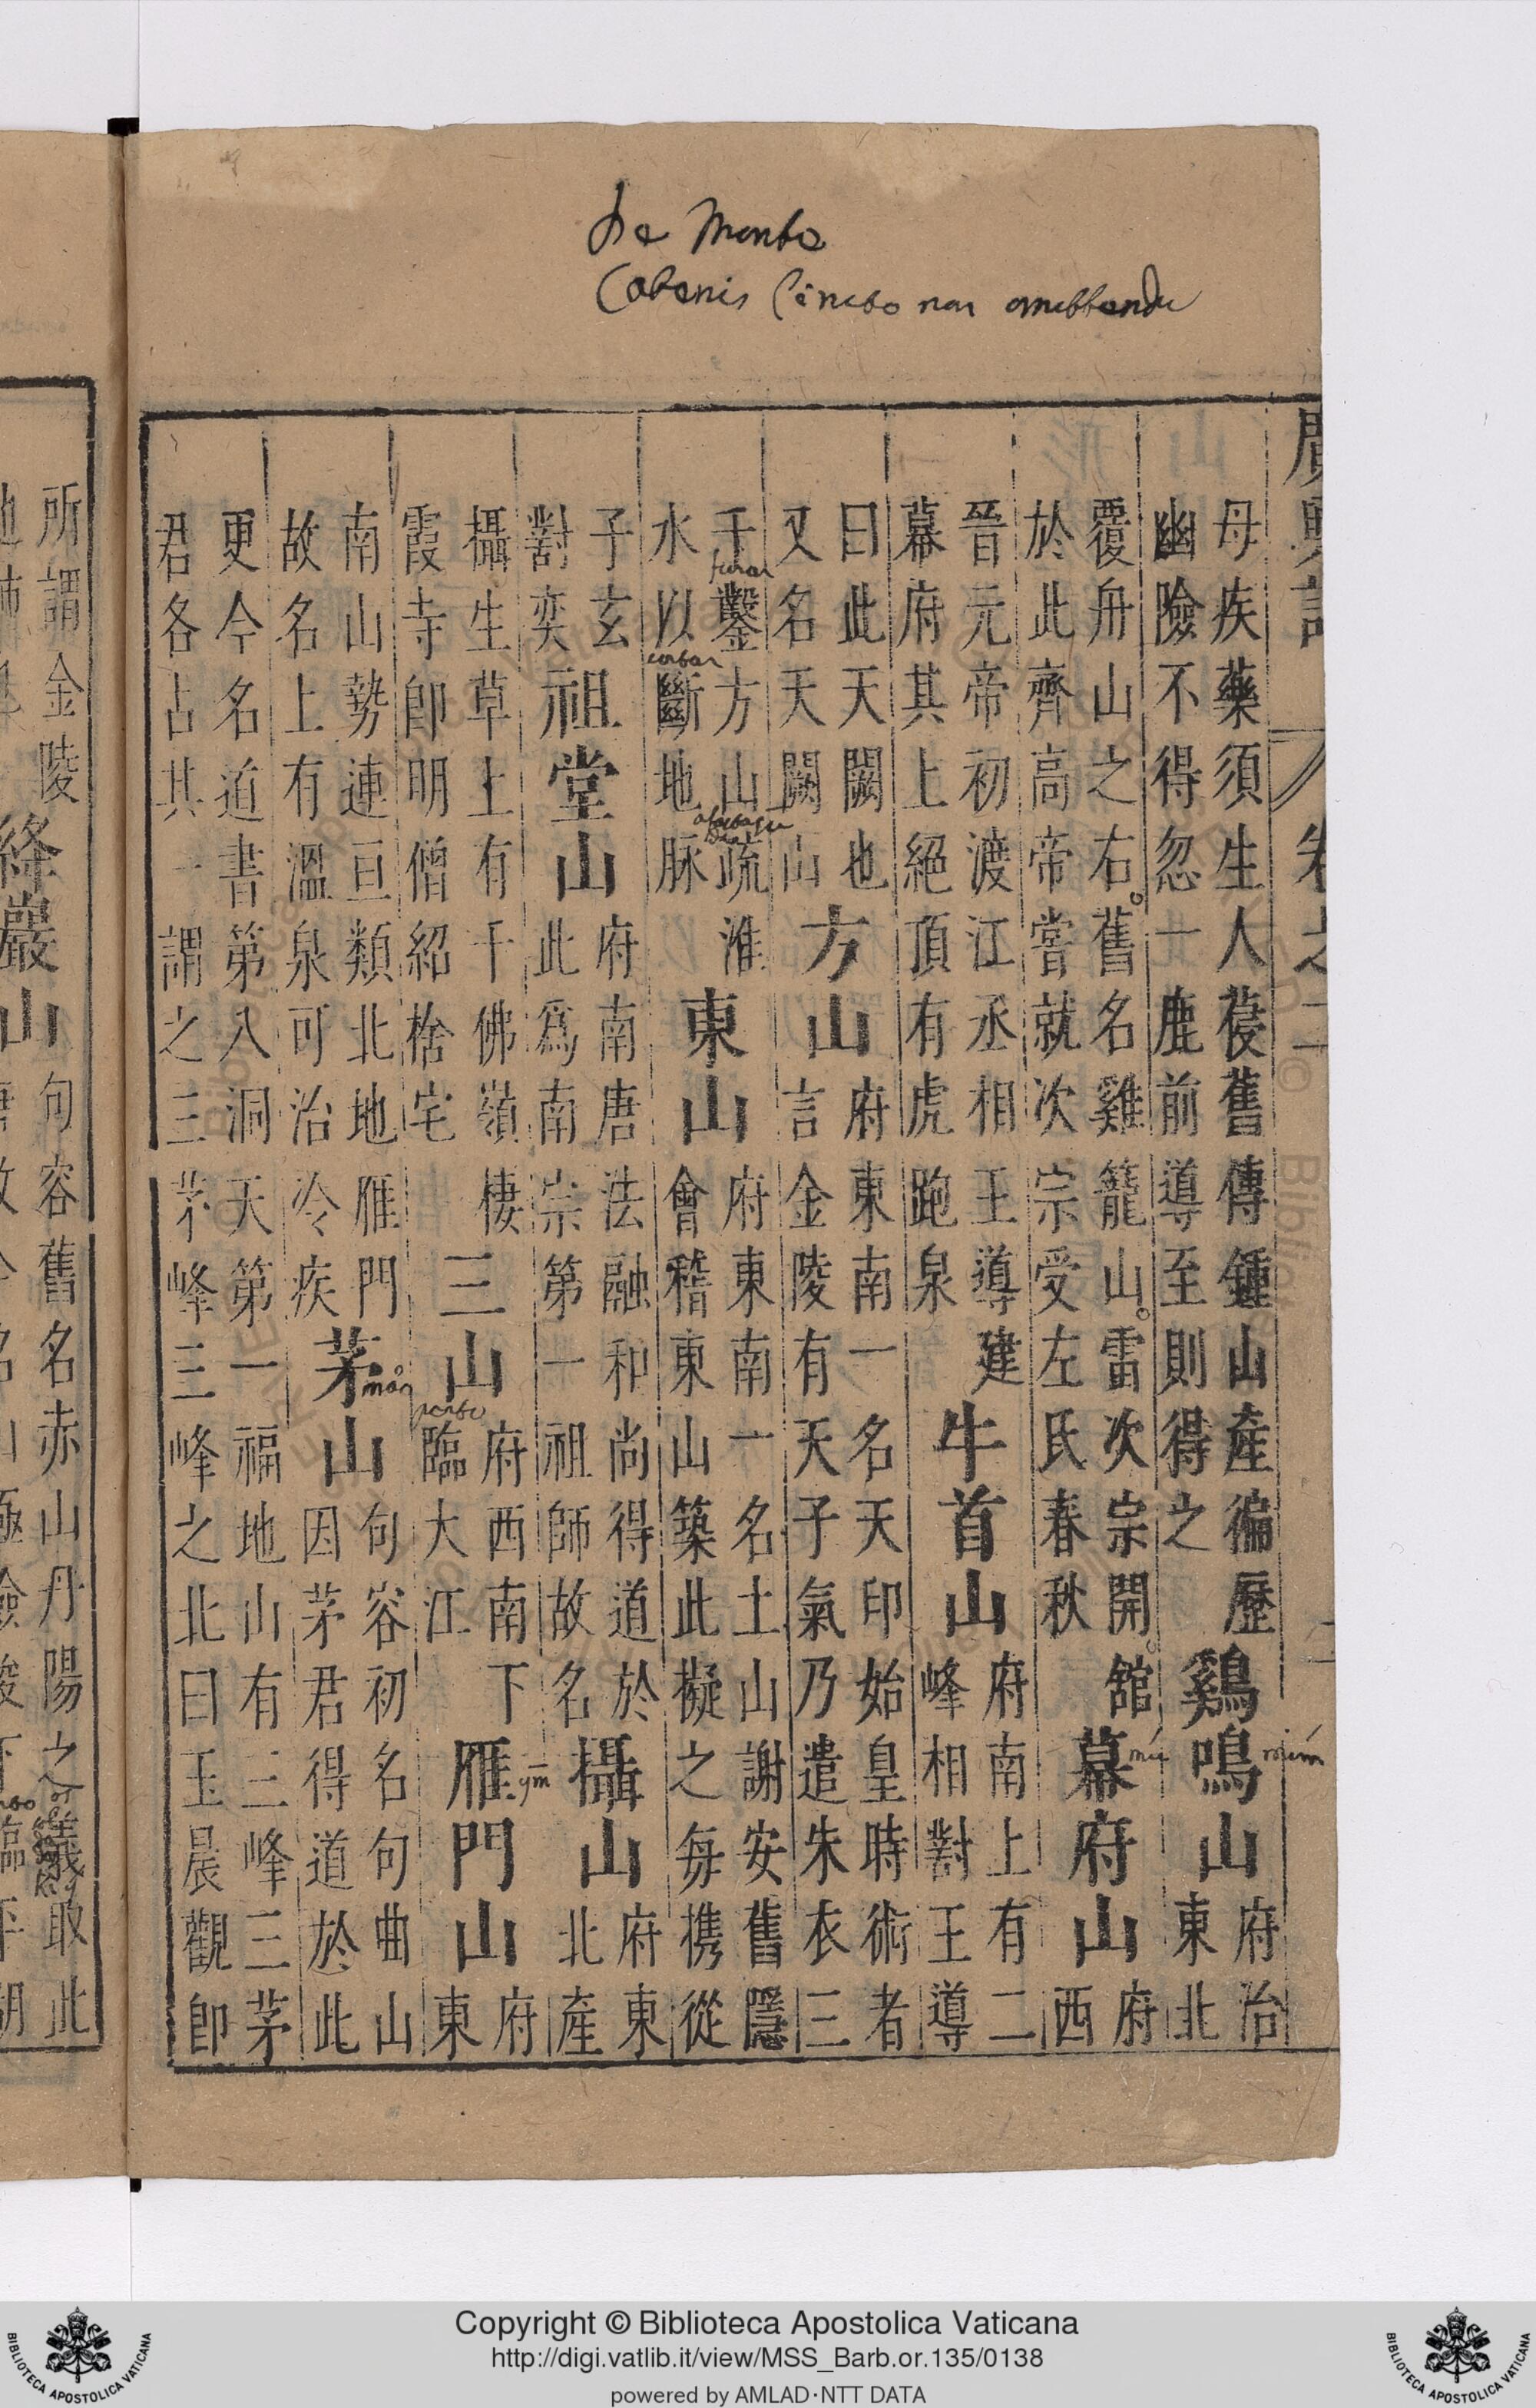 De Monte
廣輿記 卷之二
母疾藥須生人葠舊傳鍾山產徧歷
幽險不得忽一鹿前導至則得之
鷄鳴山
府治
東北
覆舟山之右舊名雞籠山雷次宗開舘
於此齊高帝嘗就次宗受左氏春秋
幕府山
府
西
晉元帝初渡江丞相王導建
幕府其上絕頂有虎跑泉
牛首山
府南上有二
峰相對王導
曰此天闕也
又名天闕山
方山
府東南一名天印始皇時術者
言金陵有天子氣乃遣朱衣三
千鑿方山疏淮
水以斷地脉
東山
府東南一名土山謝安舊隱
會稽東山築此擬之每携從
子玄
對奕
祖堂山
府南唐法融和尚得道於
此爲南宗第一祖師故名
攝山
府東
北產
攝生草上有千佛嶺棲
霞寺卽明僧紹捨宅
三山
府西南下
臨大江
雁門山
府
東
南山勢連亘類北地雁門
故名上有溫泉可治冷疾
茅山
句容初名句曲山
因茅君得道於此
更今名道書第八洞天第一福地山有三峰三茅
君各占其一謂之三茅峰三峰之北曰玉晨觀卽
所謂金陵
絳巖山
句容舊名赤山丹陽之義取此
Copyright © Biblioteca Apostolica Vaticana
http://digi.vatlib.it/view/MSS_Barb.or.135/0138
powered by AMLAD·NTT DATA
BIBLIOTECA APOSTOLICA VATICANA
BIBLIOTECA APOSTOLICA VATICANA